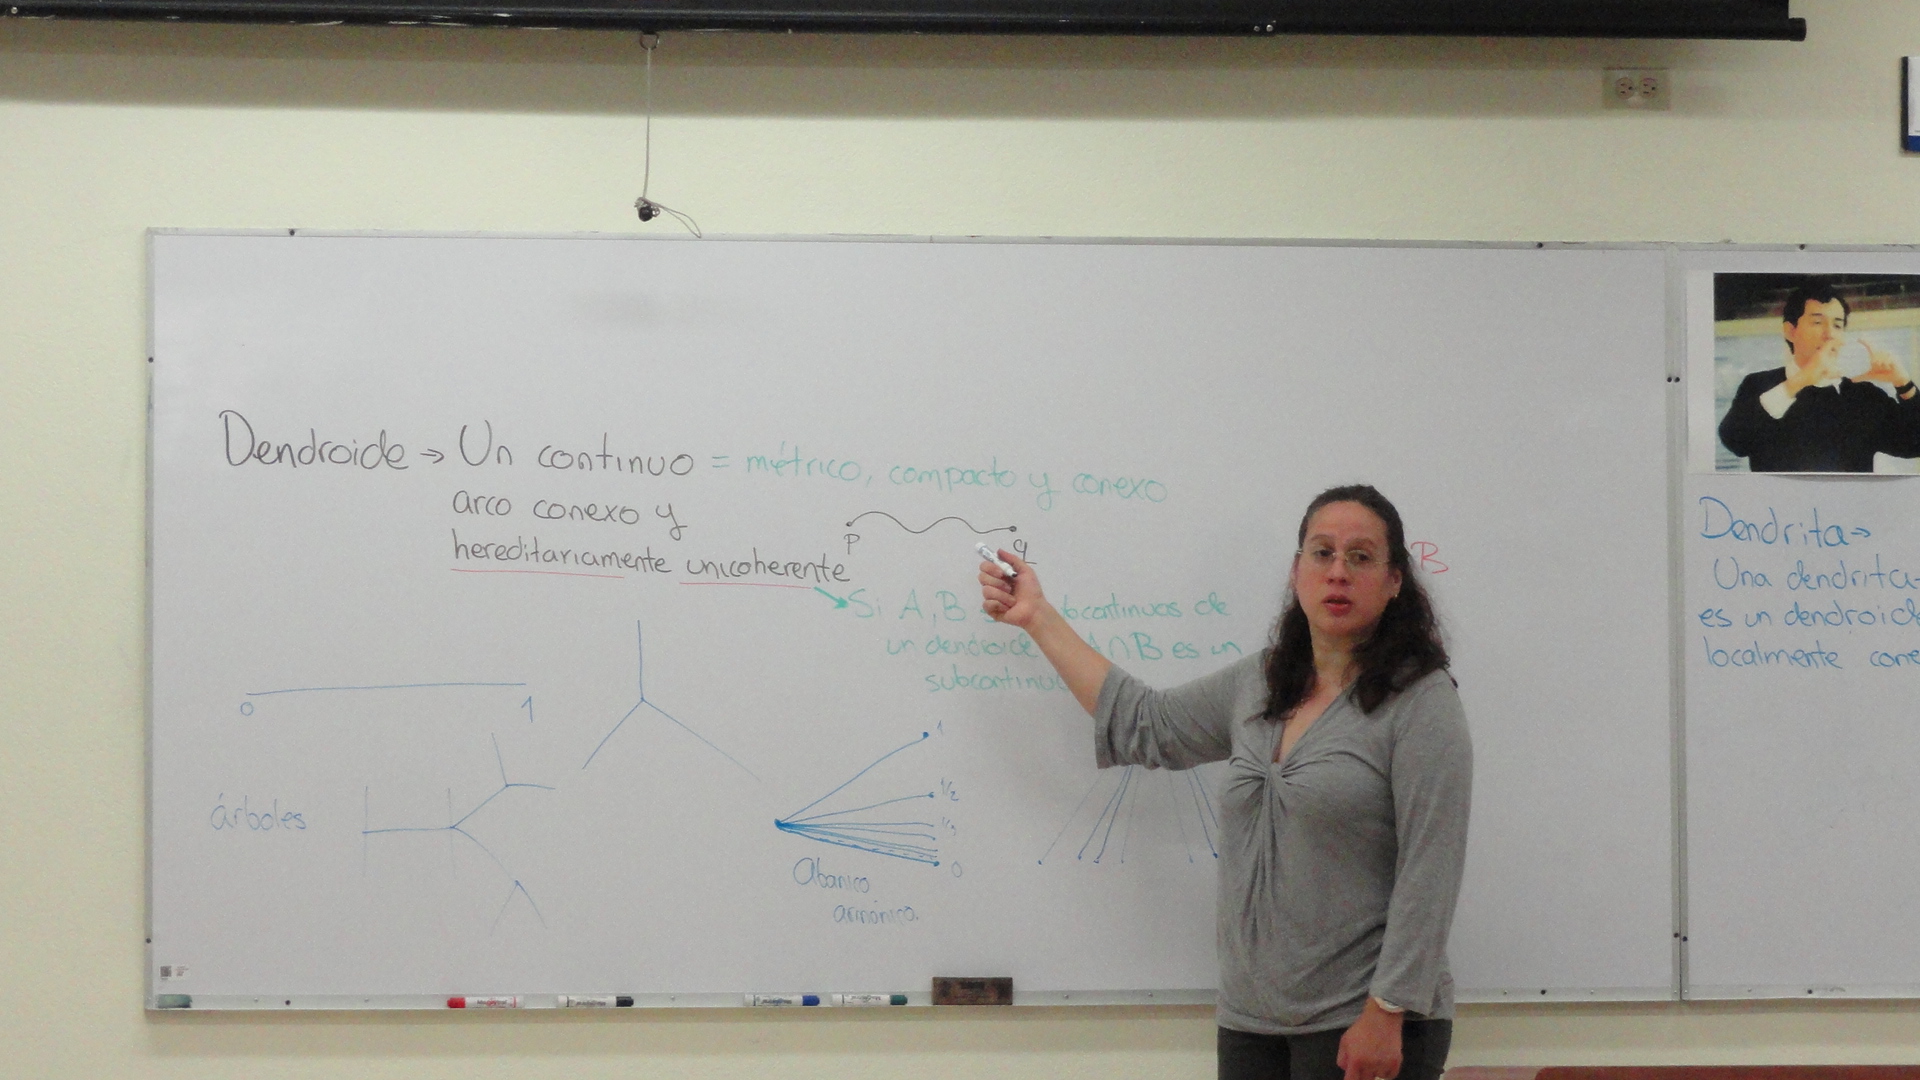 Dendroide → Un continuo = métrico, compacto y conexo
arco conexo y
hereditariamente unicoherente
p q
Si A, B subcontinuos de
un dendroide A∩B es un
subcontinuo
B
0 1
árboles
1
1/2
1/3
0
Abanico
armónico.
Dendrita →
Una dendrita
es un dendroide
localmente cone